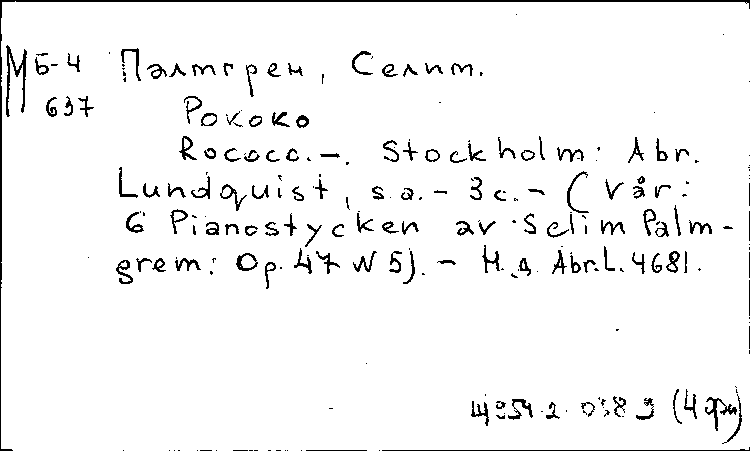 М Б-4 Палмгрен, Селим.
637 Рококо
Rococo. –. Stockholm: Abr.
Lundquist, s.a. – 3 с. – (Vår:
6 Pianostycken av Selim Palm-
grem: Op. 47 N 5). – Н.д. Abr.L. 4681.
Щ954.2 0389 (4 фи)